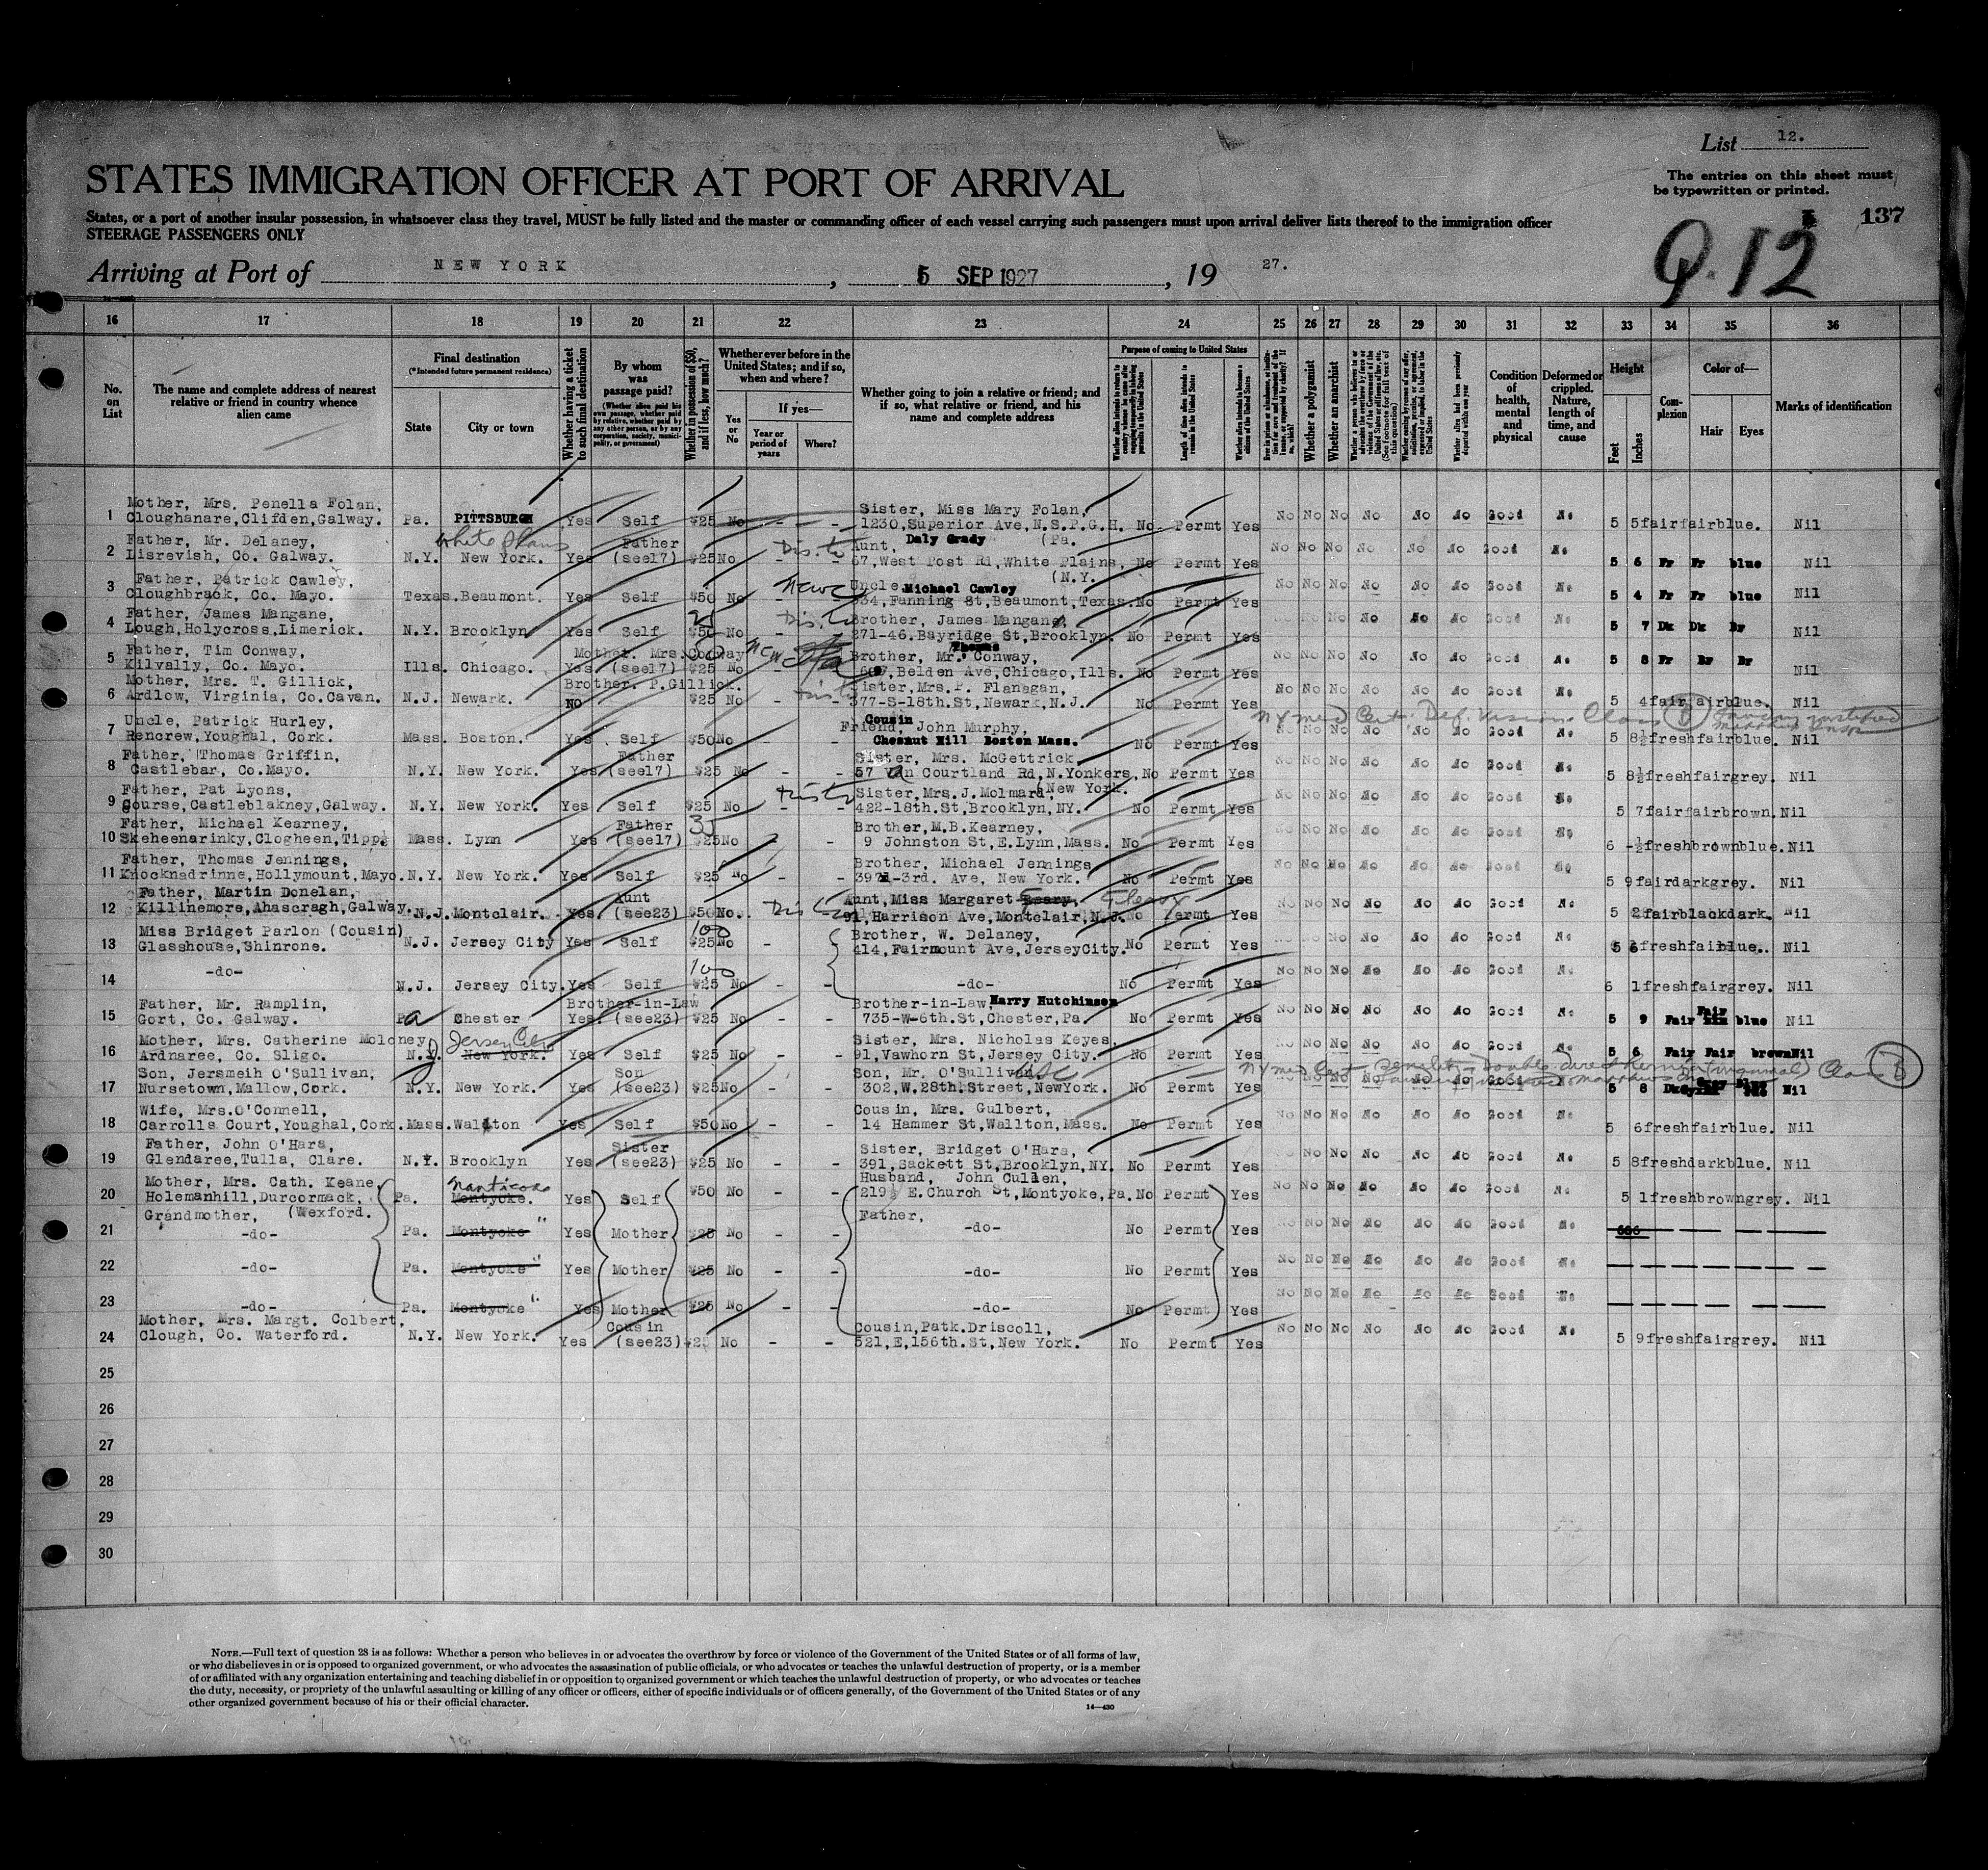 List 12.
STATES IMMIGRATION OFFICER AT PORT OF ARRIVAL
The entries on this sheet must
be typewritten or printed.
States, or a port of another insular possession, in whatsoever class they travel, MUST be fully listed and the master or commanding officer of each vessel carrying such passengers must upon arrival deliver lists thereof to the immigration officer
STEERAGE PASSENGERS ONLY
137
Q.12
Arriving at Port of NEW YORK, 5 SEP 1927, 19 27.
16 17 18 19 20 21 22 23 24 25 26 27 28 29 30 31 32 33 34 35 36
No. on List
The name and complete address of nearest relative or friend in country whence alien came
Final destination
(*Intended future permanent residence)
State
City or town
Whether having a ticket to such final destination
By whom was passage paid?
(Whether alien paid his own passage, whether paid by relative, whether paid by any other person, or by any corporation, society, municipality, or government)
Whether in possession of $50, and if less, how much?
Whether ever before in the United States; and if so, when and where?
Yes or No
If yes—
Year or period of years
Where?
Whether going to join a relative or friend; and if so, what relative or friend, and his name and complete address
Purpose of coming to United States
Length of time alien intends to remain in the United States
Whether alien intends to become a citizen of the United States
Whether a polygamist
Whether an anarchist
Whether alien had been previously deported within one year
Condition of health, mental and physical
Deformed or crippled. Nature, length of time, and cause
Height
Feet
Inches
Complexion
Color of—
Hair
Eyes
Marks of identification
1 Mother, Mrs. Penella Folan, Sister, Miss Mary Folan,
Cloughanare,Clifden,Galway. Pa. PITTSBURGH Yes Self $25 No - - 1230,Superior Ave,N.S.P.G.H. No Permt Yes No No No No No No Good No 5 5 fair fair blue. Nil
(Pa.
2 Father, Mr. Delaney, White Plains Father Aunt, Daly Grady
Lisrevish, Co. Galway. N.Y. New York. Yes (see17) $25 No - - 57,West Post Rd,White Plains, No Permt Yes No No No No No No Good No 5 6 Fr Fr blue Nil
(N.Y.
3 Father, Patrick Cawley, Uncle, Michael Cawley
Cloughbrack, Co. Mayo. Texas. Beaumont. Yes Self $50 No - 334,Fanning St,Beaumont,Texas. No Permt Yes No No No No No No Good No 5 4 Fr Fr blue Nil
4 Father, James Mangane, 25 Brother, James Mangane,
Lough,Holycross,Limerick. N.Y. Brooklyn Yes Self $50 No - - 271-46.Bayridge St,Brooklyn. No Permt Yes No No No No No Good No 5 7 Dk Dk Br Nil
5 Father, Tim Conway, Mother. Mrs. Conway Brother, Mr. Thomas Conway,
Kilvally, Co. Mayo. Ills. Chicago. Yes (see17) $25 No Belden Ave,Chicago,Ills. No Permt Yes No No No No No No Good No 5 8 Fr Br Br Nil
6 Mother, Mrs. T. Gillick, Brother. P.Gillick. Sister, Mrs.P. Flanagan,
Ardlow, Virginia, Co.Cavan. N.J. Newark. NO $25 No - 377-S-18th.St,Newark,N.J. No Permt Yes No No No No No No Good No 5 4 fair fair blue. Nil
NY med Cert: Def. vision Class B
7 Uncle, Patrick Hurley, Cousin Friend, John Murphy,
Rencrew,Youghal, Cork. Mass. Boston. Yes Self $50 No - - Chesnut Hill Boston Mass. No Permt Yes No No No No No No Good No 5 8½ fresh fair blue. Nil
8 Father, Thomas Griffin, Father Sister, Mrs. McGettrick
Castlebar, Co.Mayo. N.Y. New York. Yes (see17) $25 No - - 57 Van Courtland Rd,N.Yonkers, No Permt Yes No No No No No No Good No 5 8½ fresh fair grey. Nil
(New York.
9 Father, Pat Lyons, Sister,Mrs.J.Molmard
Course,Castleblakney,Galway. N.Y. New York. Yes Self $25 No - - 422-18th.St,Brooklyn,NY. No Permt Yes No No No No No No Good No 5 7 fair fair brown. Nil
10 Father, Michael Kearney, Father 35 Brother,M.B.Kearney,
Skeheenarinky,Clogheen,Tipp. Mass. Lynn Yes (see17) $25 No - - 9 Johnston St,E.Lynn,Mass. No Permt Yes No No No No No No Good No 6 -½ fresh brown blue. Nil
11 Father, Thomas Jennings, Brother, Michael Jennings
Knocknadrinne,Hollymount,Mayo. N.Y. New York. Yes Self $25 No - - 3971-3rd. Ave, New York. No Permt Yes No No No No No No Good No 5 9 fair dark grey. Nil
12 Father, Martin Donelan, Aunt Aunt, Miss Margaret Geary,
Killinemore,Ahascragh,Galway. N.J. Montclair. Yes (see23) $50 No. 91,Harrison Ave,Montclair,N.J. No Permt Yes No No No No No No Good No 5 2 fair black dark. Nil
13 Miss Bridget Parlon (Cousin) 100 Brother, W. Delaney,
Glasshouse,Shinrone. N.J. Jersey City Yes Self $25 No - - 414,Fairmount Ave,JerseyCity. No Permt Yes No No No No No No Good No 5 6 fresh fair blue. Nil
14 -do- 100
N.J. Jersey City. Yes Self $25 No - - -do- No Permt Yes No No No No No No Good No 6 1 fresh fair grey. Nil
15 Father, Mr. Ramplin, Brother-in-Law Brother-in-Law, Harry Hutchinson
Gort, Co. Galway. Pa Chester Yes. (see23) $25 No - - 735-W-6th.St,Chester,Pa. No Permt Yes No No No No No No Good No 5 9 Fair Fair blue Nil
16 Mother, Mrs. Catherine Moloney, Jersey City Sister, Mrs. Nicholas Keyes,
Ardnaree, Co. Sligo. N.J. New York. Yes Self $25 No - - 91,Vawhorn St,Jersey City. No Permt Yes No No No No No No Good No 5 6 Fair Fair brown Nil
NY med Cert Senility - Double direct hernia (inguinal) Class B
17 Son, Jersmeih O'Sullivan, Son Son, Mr. O'Sullivan USC
Nursetown,Mallow,Cork. N.Y. New York. Yes (see23) $25 No - - 302,W.28th.Street,NewYork. No Permt Yes No No No No No No Good No 5 8 Grey Blue Nil
18 Wife, Mrs.O'Connell, Cousin, Mrs. Gulbert,
Carrolls Court,Youghal,Cork. Mass. Wallton Yes Self $50 No - - 14 Hammer St,Wallton,Mass. No Permt Yes No No No No No No Good No 5 6 fresh fair blue. Nil
19 Father, John O'Hara, Sister Sister, Bridget O'Hara,
Glendaree,Tulla, Clare. N.Y. Brooklyn Yes (see23) $25 No - - 391,Sackett St,Brooklyn,NY. No Permt Yes No No No No No No Good No 5 8 fresh dark blue. Nil
20 Mother, Mrs. Cath. Keane, Nanticoke Husband, John Cullen,
Holemanhill,Durcormack, Pa. Montyoke. Yes Self $50 No - - 219½ E.Church St,Montyoke,Pa. No Permt Yes No No No No No No Good No 5 1 fresh brown grey. Nil
(Wexford.
21 Grandmother, Father,
-do- Pa. Montyoke " Yes Mother $25 No - - -do- No Permt Yes No No No No No No Good No
22 -do- Pa. Montyoke " Yes Mother $25 No - - -do- No Permt Yes No No No No No No Good No
23 -do- Pa. Montyoke " Yes Mother $25 No - - -do- No Permt Yes No No No No No No Good No
24 Mother, Mrs. Margt. Colbert, Cousin Cousin,Patk.Driscoll,
Clough, Co. Waterford. N.Y. New York. Yes (see23) $25 No - - 521,E,156th.St,New York. No Permt Yes No No No No No No Good No 5 9 fresh fair grey. Nil
25
26
27
28
29
30
NOTE.—Full text of question 28 is as follows: Whether a person who believes in or advocates the overthrow by force or violence of the Government of the United States or of all forms of law,
or who disbelieves in or is opposed to organized government, or who advocates the assassination of public officials, or who advocates or teaches the unlawful destruction of property, or is a member
of or affiliated with any organization entertaining and teaching disbelief in or opposition to organized government or which teaches the unlawful destruction of property, or who advocates or teaches
the duty, necessity, or propriety of the unlawful assaulting or killing of any officer or officers, either of specific individuals or of officers generally, of the Government of the United States or of any
other organized government because of his or their official character.
14—430